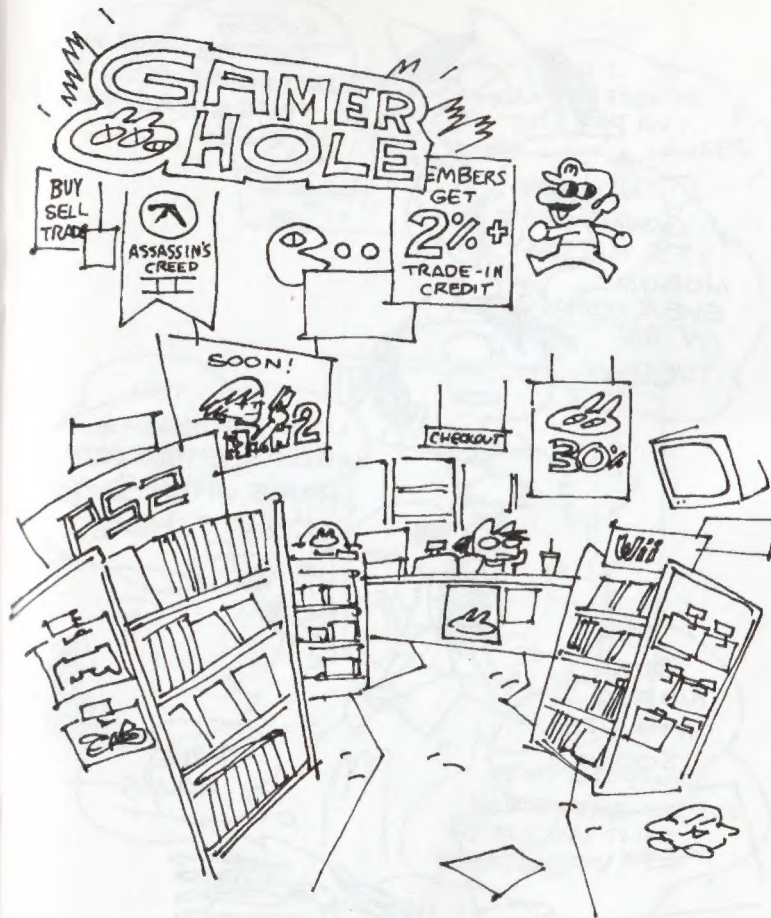 GAMER
HOLE
BUY
SELL
TRADE
ASSASSIN'S
CREED
II
EMBERS
GET
2%+
TRADE-IN
CREDIT
SOON!
2
CHECKOUT
30%
PS2
Wii